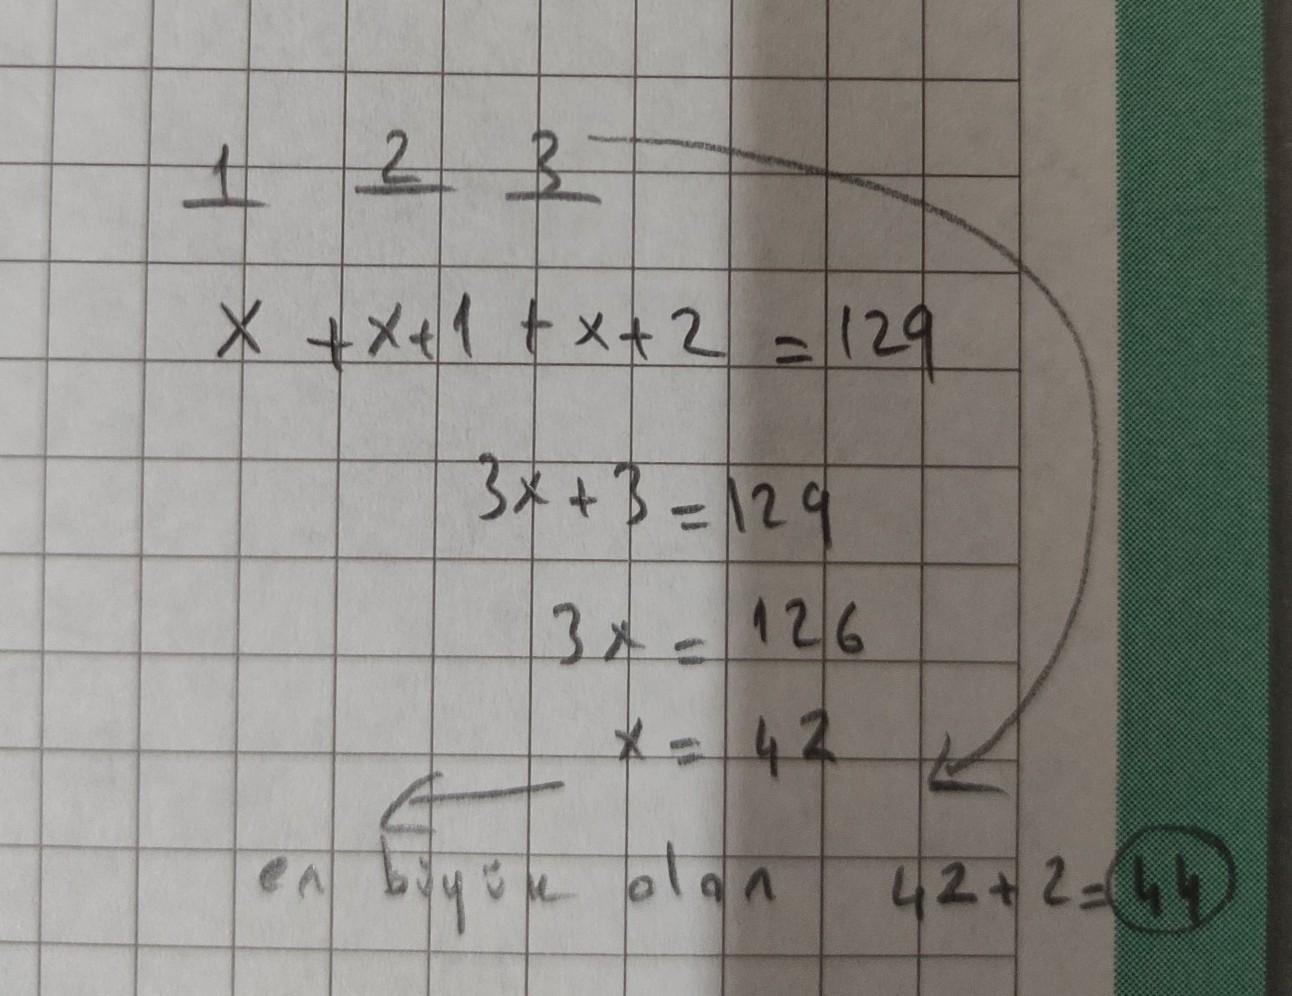 1 2 3
x + x+1 + x+2 = 129
3x+3 = 129
3x = 126
x = 42
en büyük olan 42+2=44